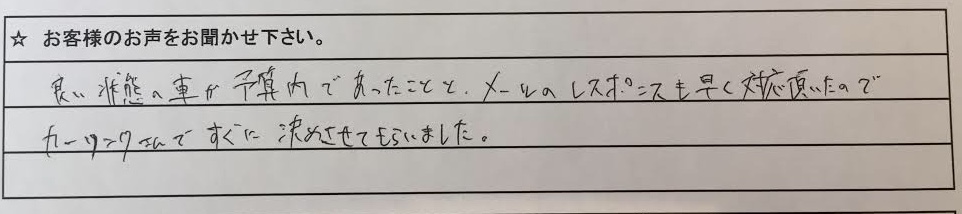 ☆ お客様のお声をお聞かせ下さい。
良い状態の車が予算内であったことと、メールのレスポンスも早く対応頂いたので
カーリンクさんですぐに決めさせてもらいました。